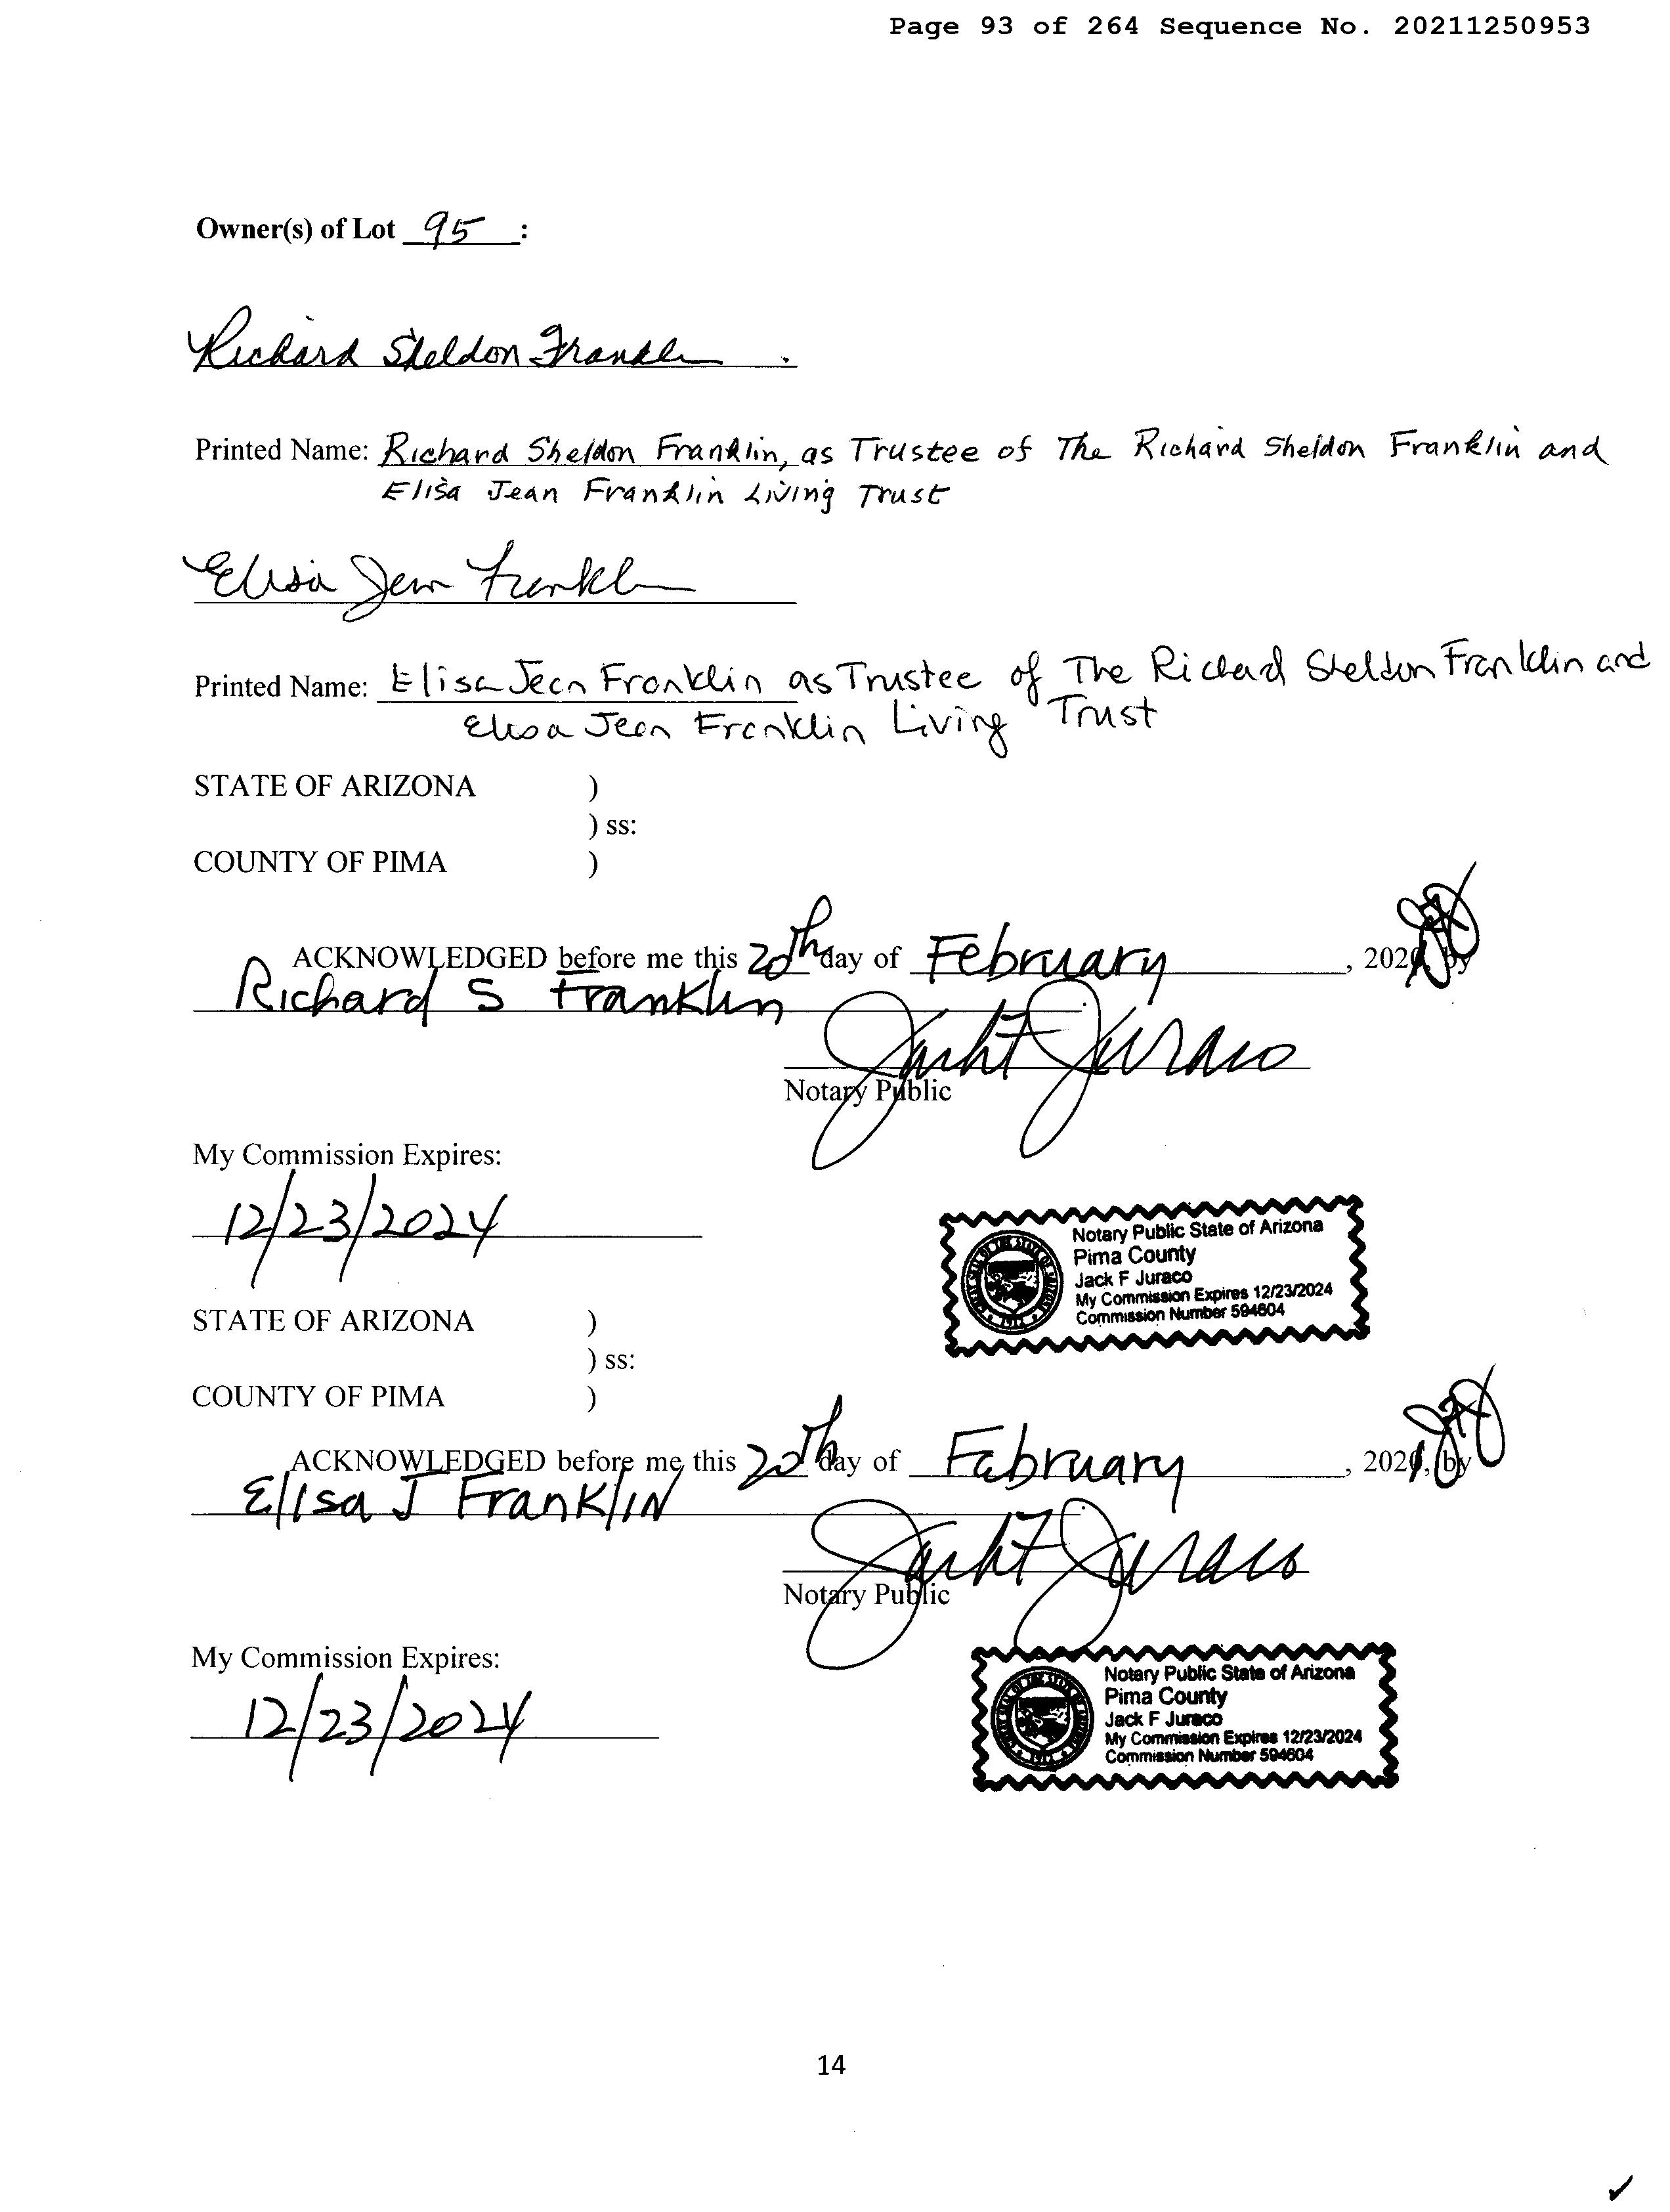 Page 93 of 264 Sequence No. 20211250953
Owner(s) of Lot 95 :
Richard Sheldon Franklin
Printed Name: Richard Sheldon Franklin, as Trustee of The Richard Sheldon Franklin and
Elisa Jean Franklin Living Trust
Elisa Jean Franklin
Printed Name: Elisa Jean Franklin as Trustee of The Richard Sheldon Franklin and
Elisa Jean Franklin Living Trust
STATE OF ARIZONA )
) ss:
COUNTY OF PIMA )
ACKNOWLEDGED before me this 20th day of February, 202 by
Richard S Franklin
Jack F Juraco
Notary Public
My Commission Expires:
12/23/2024
Notary Public State of Arizona
Pima County
Jack F Juraco
My Commission Expires 12/23/2024
Commission Number 594604
STATE OF ARIZONA )
) ss:
COUNTY OF PIMA )
ACKNOWLEDGED before me this 20th day of February, 2021, by
Elisa J Franklin
Jack F Juraco
Notary Public
My Commission Expires:
12/23/2024
Notary Public State of Arizona
Pima County
Jack F Juraco
My Commission Expires 12/23/2024
Commission Number 594604
14